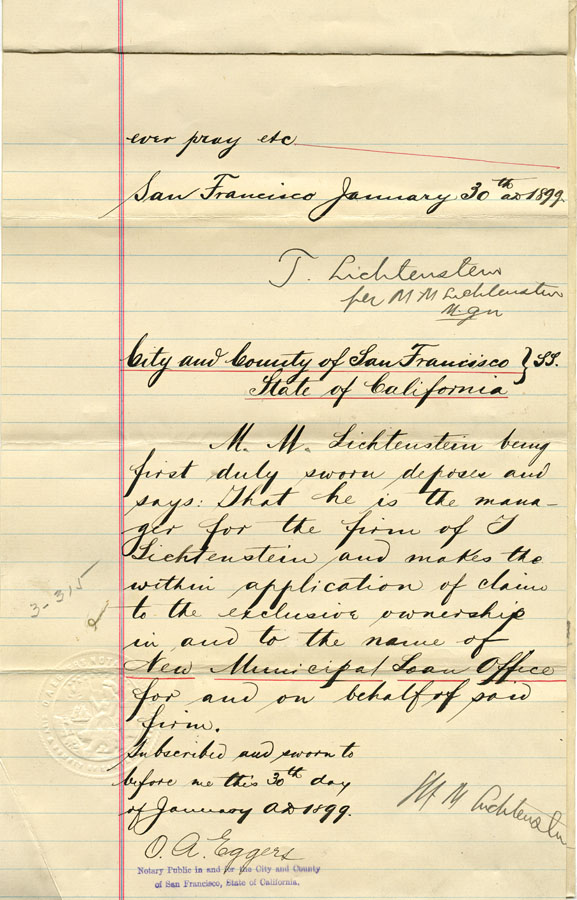 ever pray etc
San Francisco January 30th AD 1899.
T. Lichtenstein
per M M Lichtenstein
Mgr
City and County of San Francisco } SS.
State of California
M. M. Lichtenstein being
first duly sworn deposes and
says: That he is the mana-
ger for the firm of T
Lichtenstein and makes the
within application of claim
to the exclusive ownership
in and to the name of
New Municipal Loan Office
for and on behalf of said
firm.
Subscribed and sworn to
before me this 30th day
of January AD 1899.
M M Lichtenstein
O. A. Eggers
Notary Public in and for the City and County
of San Francisco, State of California.
3-315